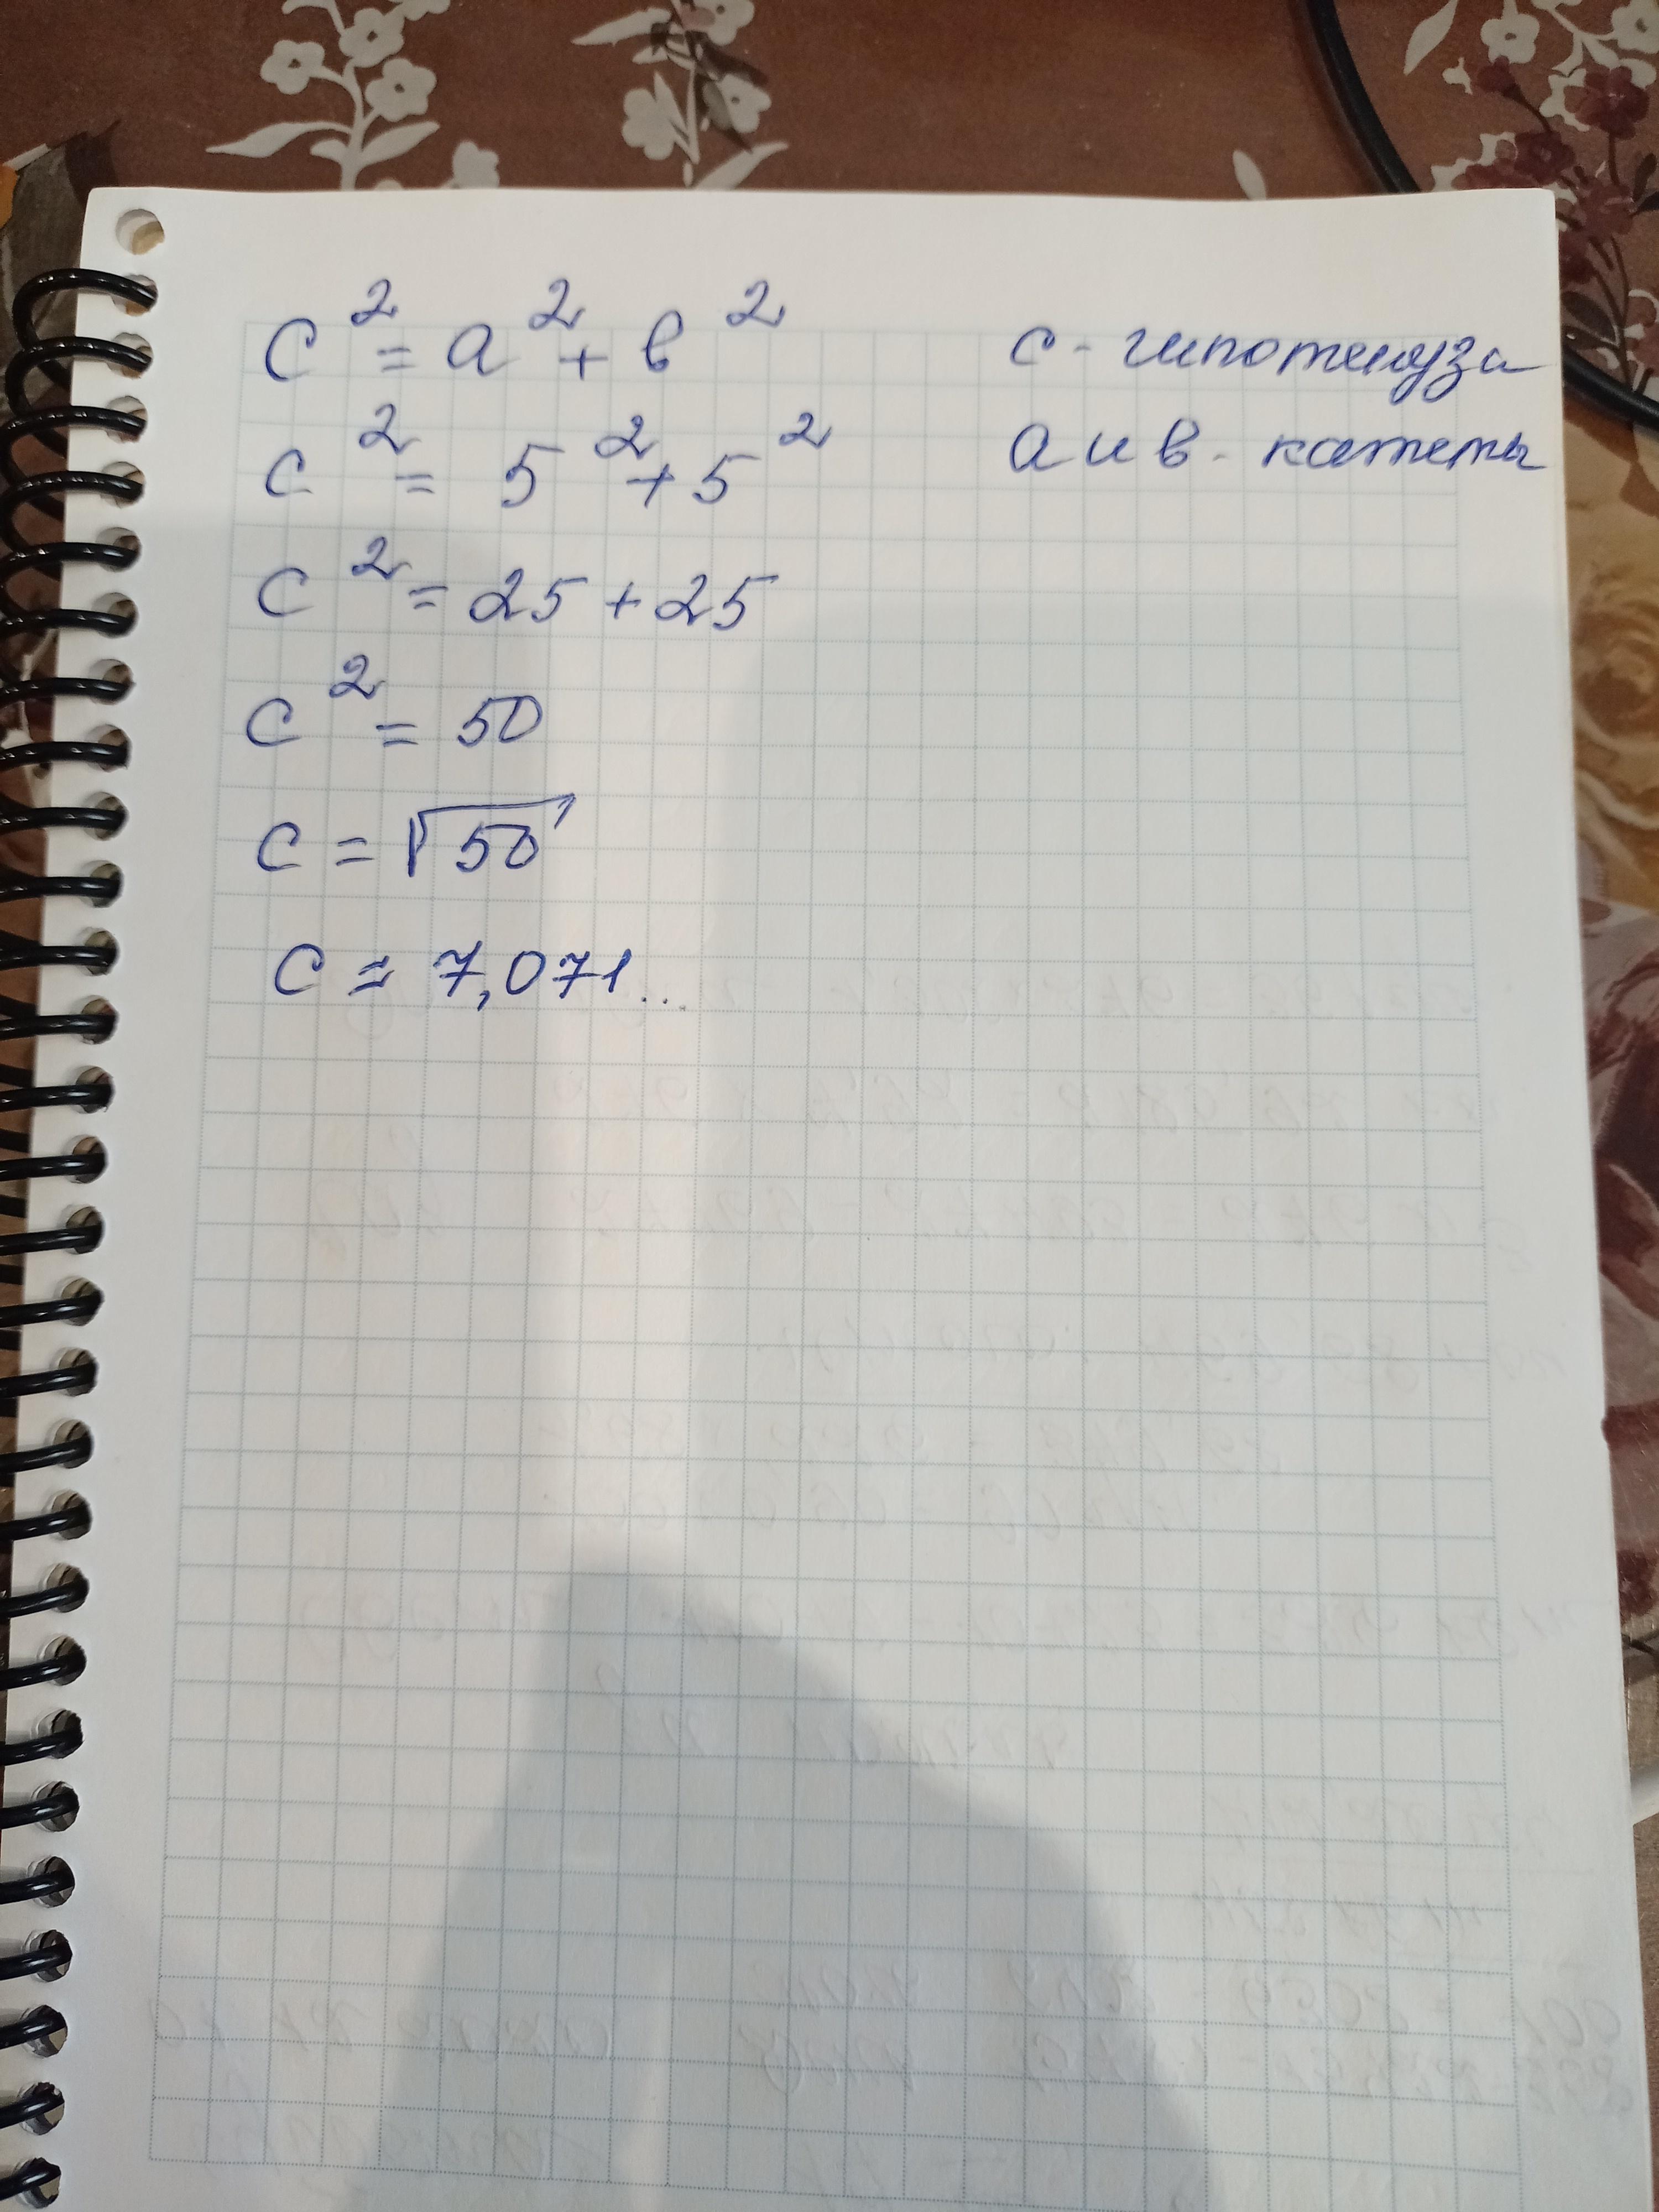 c² = a² + в²
c - гипотенуза
c² = 5² + 5²
a и в - катеты
c² = 25 + 25
c² = 50
c = √50
c ≈ 7,071...